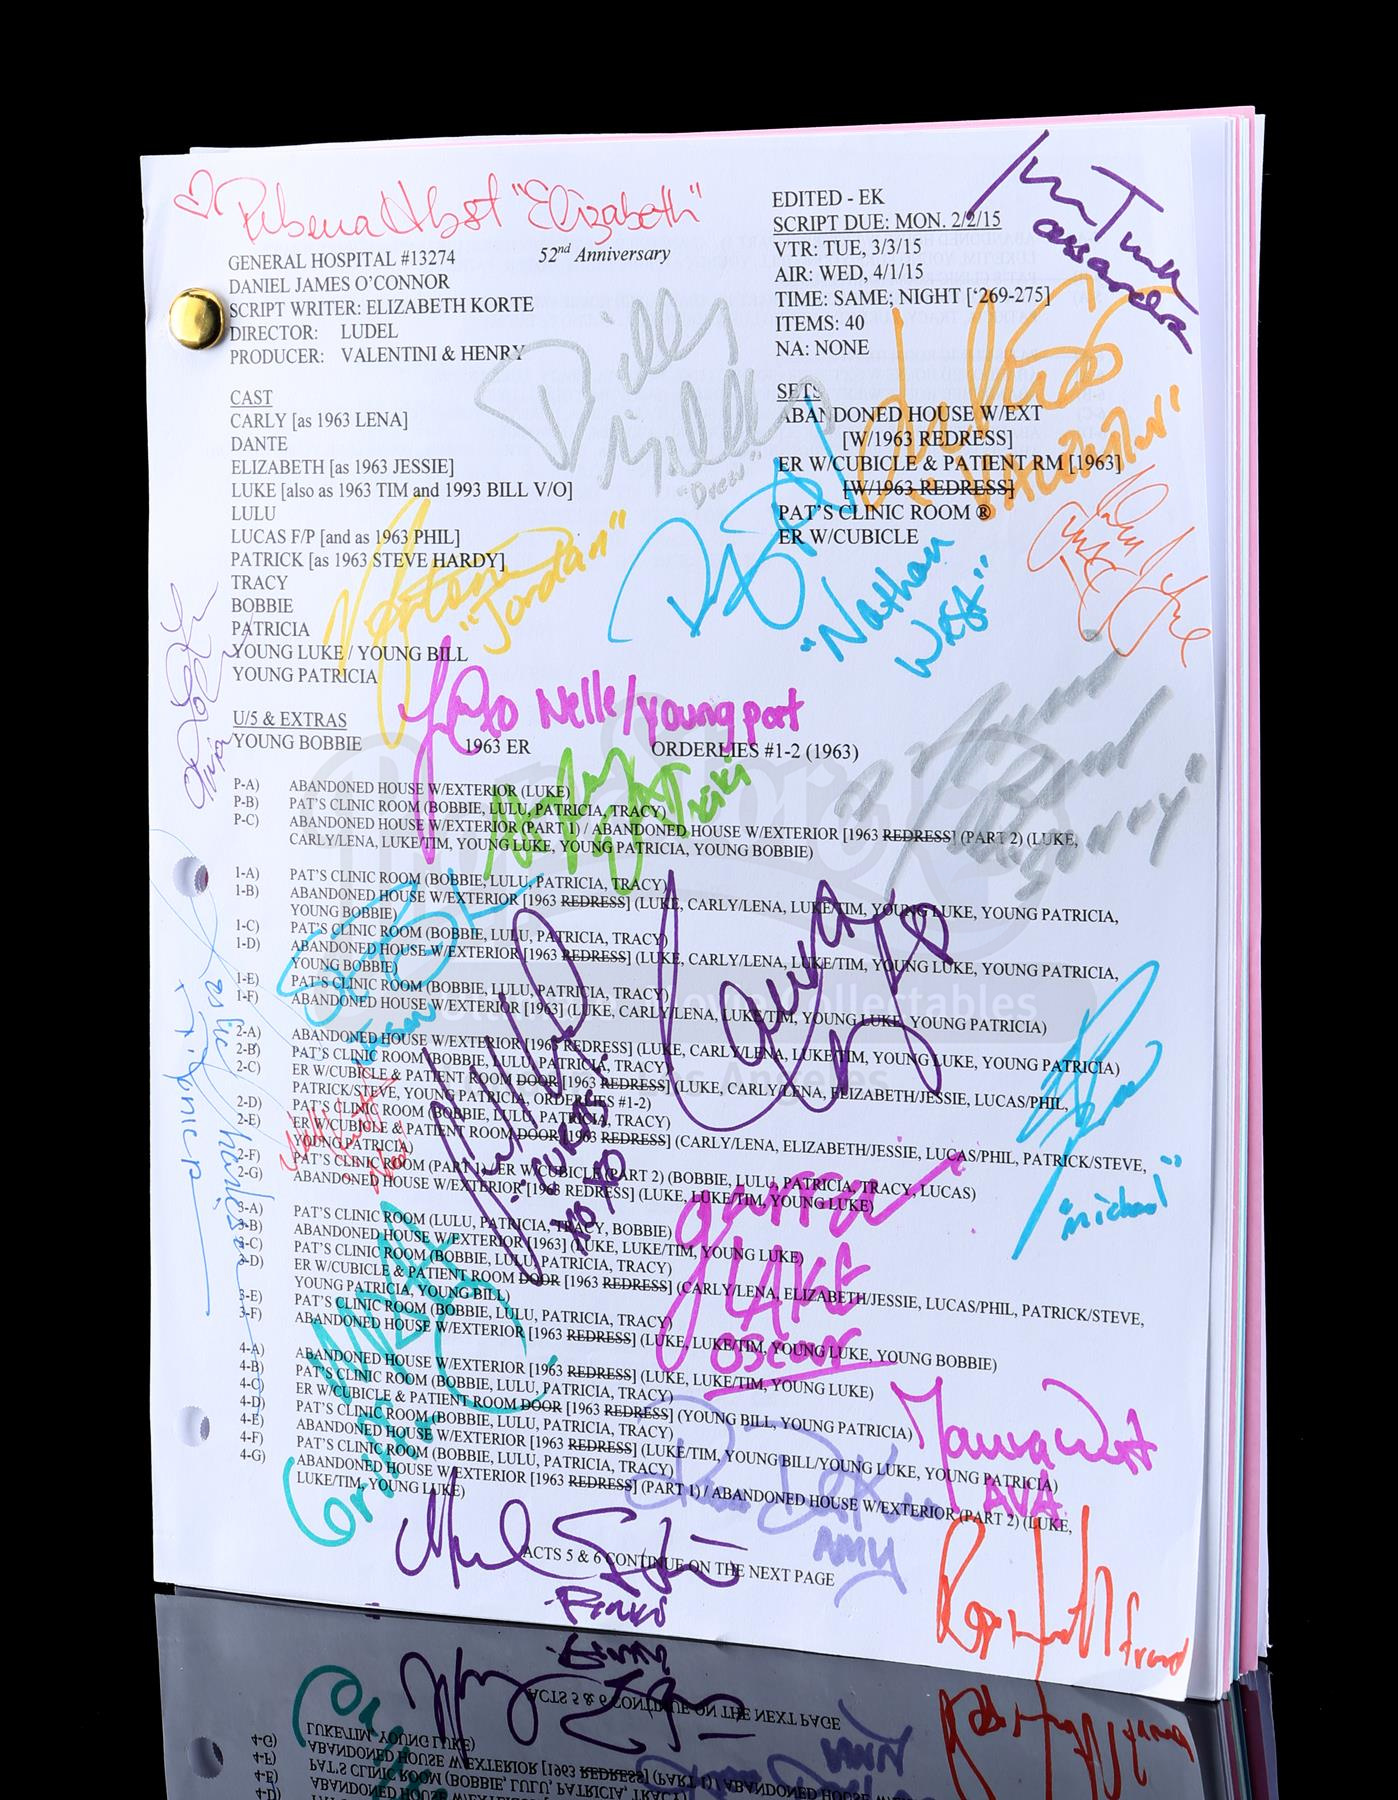 "Elizabeth"
EDITED - EK
SCRIPT DUE: MON. 2/2/15
VTR: TUE, 3/3/15
AIR: WED, 4/1/15
TIME: SAME; NIGHT ['269-275]
ITEMS: 40
NA: NONE
GENERAL HOSPITAL #13274
52nd Anniversary
DANIEL JAMES O'CONNOR
SCRIPT WRITER: ELIZABETH KORTE
DIRECTOR: LUDEL
PRODUCER: VALENTINI & HENRY
Billy Miller
"Drew"
CAST
CARLY [as 1963 LENA]
DANTE
ELIZABETH [as 1963 JESSIE]
LUKE [also as 1963 TIM and 1993 BILL V/O]
LULU
LUCAS F/P [and as 1963 PHIL]
PATRICK [as 1963 STEVE HARDY]
TRACY
BOBBIE
PATRICIA
YOUNG LUKE / YOUNG BILL
YOUNG PATRICIA
SETS
ABANDONED HOUSE W/EXT
[W/1963 REDRESS]
ER W/CUBICLE & PATIENT RM [1963]
[W/1963 REDRESS]
PAT'S CLINIC ROOM ®
ER W/CUBICLE
"Jordan"
"Nathan
West"
Nelle/young pat
U/5 & EXTRAS
YOUNG BOBBIE
1963 ER
ORDERLIES #1-2 (1963)
Kiki
P-A) ABANDONED HOUSE W/EXTERIOR (LUKE)
P-B) PAT'S CLINIC ROOM (BOBBIE, LULU, PATRICIA, TRACY)
P-C) ABANDONED HOUSE W/EXTERIOR (PART 1) / ABANDONED HOUSE W/EXTERIOR [1963 REDRESS] (PART 2) (LUKE,
CARLY/LENA, LUKE/TIM, YOUNG LUKE, YOUNG PATRICIA, YOUNG BOBBIE)
1-A) PAT'S CLINIC ROOM (BOBBIE, LULU, PATRICIA, TRACY)
1-B) ABANDONED HOUSE W/EXTERIOR [1963 REDRESS] (LUKE, CARLY/LENA, LUKE/TIM, YOUNG LUKE, YOUNG PATRICIA,
YOUNG BOBBIE)
1-C) PAT'S CLINIC ROOM (BOBBIE, LULU, PATRICIA, TRACY)
1-D) ABANDONED HOUSE W/EXTERIOR [1963 REDRESS] (LUKE, CARLY/LENA, LUKE/TIM, YOUNG LUKE, YOUNG PATRICIA,
YOUNG BOBBIE)
1-E) PAT'S CLINIC ROOM (BOBBIE, LULU, PATRICIA, TRACY)
1-F) ABANDONED HOUSE W/EXTERIOR [1963] (LUKE, CARLY/LENA, LUKE/TIM, YOUNG LUKE, YOUNG PATRICIA)
2-A) ABANDONED HOUSE W/EXTERIOR [1963 REDRESS] (LUKE, CARLY/LENA, LUKE/TIM, YOUNG LUKE, YOUNG PATRICIA)
2-B) PAT'S CLINIC ROOM (BOBBIE, LULU, PATRICIA, TRACY)
2-C) ER W/CUBICLE & PATIENT ROOM DOOR [1963 REDRESS] (LUKE, CARLY/LENA, ELIZABETH/JESSIE, LUCAS/PHIL,
PATRICK/STEVE, YOUNG PATRICIA, ORDERLIES #1-2)
2-D) PAT'S CLINIC ROOM (BOBBIE, LULU, PATRICIA, TRACY)
2-E) ER W/CUBICLE & PATIENT ROOM DOOR [1963 REDRESS] (CARLY/LENA, ELIZABETH/JESSIE, LUCAS/PHIL, PATRICK/STEVE,
YOUNG PATRICIA)
2-F) PAT'S CLINIC ROOM (PART 1) / ER W/CUBICLE (PART 2) (BOBBIE, LULU, PATRICIA, TRACY, LUCAS)
2-G) ABANDONED HOUSE W/EXTERIOR [1963 REDRESS] (LUKE, LUKE/TIM, YOUNG LUKE)
"LUCAS"
XOXO
"michael"
3-A) PAT'S CLINIC ROOM (LULU, PATRICIA, TRACY, BOBBIE)
3-B) ABANDONED HOUSE W/EXTERIOR [1963] (LUKE, LUKE/TIM, YOUNG LUKE)
3-C) PAT'S CLINIC ROOM (BOBBIE, LULU, PATRICIA, TRACY)
3-D) ER W/CUBICLE & PATIENT ROOM DOOR [1963 REDRESS] (CARLY/LENA, ELIZABETH/JESSIE, LUCAS/PHIL, PATRICK/STEVE,
YOUNG PATRICIA, YOUNG BILL)
3-E) PAT'S CLINIC ROOM (BOBBIE, LULU, PATRICIA, TRACY)
3-F) ABANDONED HOUSE W/EXTERIOR [1963 REDRESS] (LUKE, LUKE/TIM, YOUNG LUKE, YOUNG BOBBIE)
LAKE
OSCAR
4-A) ABANDONED HOUSE W/EXTERIOR [1963 REDRESS] (LUKE, LUKE/TIM, YOUNG LUKE)
4-B) PAT'S CLINIC ROOM (BOBBIE, LULU, PATRICIA, TRACY)
4-C) ER W/CUBICLE & PATIENT ROOM DOOR [1963 REDRESS] (YOUNG BILL, YOUNG PATRICIA)
4-D) PAT'S CLINIC ROOM (BOBBIE, LULU, PATRICIA, TRACY)
4-E) ABANDONED HOUSE W/EXTERIOR [1963 REDRESS] (LUKE/TIM, YOUNG BILL/YOUNG LUKE, YOUNG PATRICIA)
4-F) PAT'S CLINIC ROOM (BOBBIE, LULU, PATRICIA, TRACY)
4-G) ABANDONED HOUSE W/EXTERIOR [1963 REDRESS] (PART 1) / ABANDONED HOUSE W/EXTERIOR (PART 2) (LUKE,
LUKE/TIM, YOUNG LUKE)
Griffin
Maura West
AVA
AMY
ACTS 5 & 6 CONTINUE ON THE NEXT PAGE